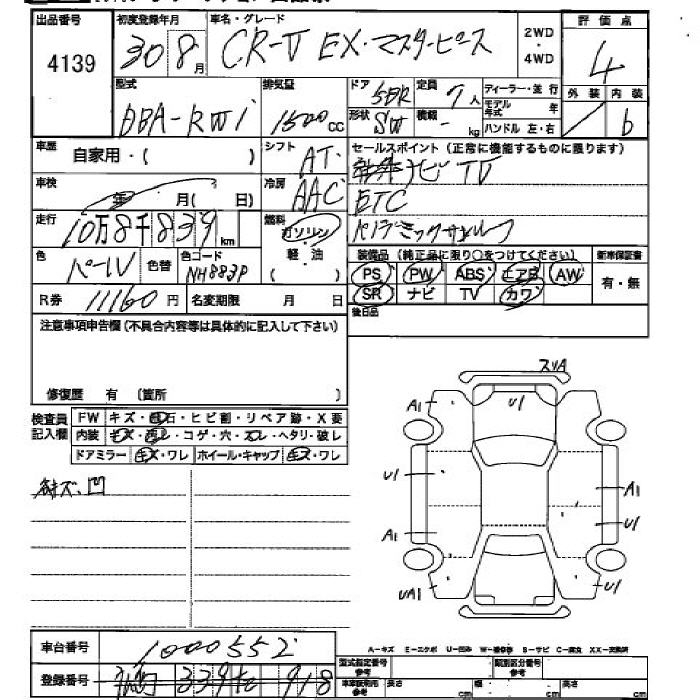 出品番号 初度登録年月 車名・グレード 2WD・4WD 評価点
4139 30 8月 CR-V EX・マスターピース 4
型式 排気量 ドア 5DR 定員 7人 ディーラー・並行 外装 内装
DBA-RW1 1500cc 形状 SW 積載 - kg モデル年式 年 b
ハンドル 左・右
車歴 自家用・( ) シフト AT セールスポイント(正常に機能するものに限ります)
ナビ TV
車検 年 月( 日) 冷房 AAC ETC
走行 10万8千839km 燃料 ガソリン・軽・油 ( )
色 パール 色替 色コード NH883P 装備品(純正品に限り○をつけてください) 新車保証書
PS PW ABS エアB AW 有・無
R券 11160円 名変期限 月 日 SR ナビ TV カワ
注意事項申告欄(不具合内容等は具体的に記入して下さい) 後日品
修復歴 有 〔箇所 〕
検査員記入欄 FW キズ・飛石・ヒビ割・リペア跡・X要
内装 キズ・汚レ・コゲ・穴・スレ・ヘタリ・破レ
ドアミラー キズ・ワレ ホイール・キャップ キズ・ワレ
キズ・凹
スリA
A1 U1
U1 A1
U1
A1
UA1 U1
車台番号 1000552
A-キズ E-エクボ U-凹み W-補修跡 S-サビ C-腐食 XX-交換済
登録番号 339 918
型式指定番号 参考 類別区分番号 参考
車車版利用 参考 長さ cm 幅 cm 高さ cm